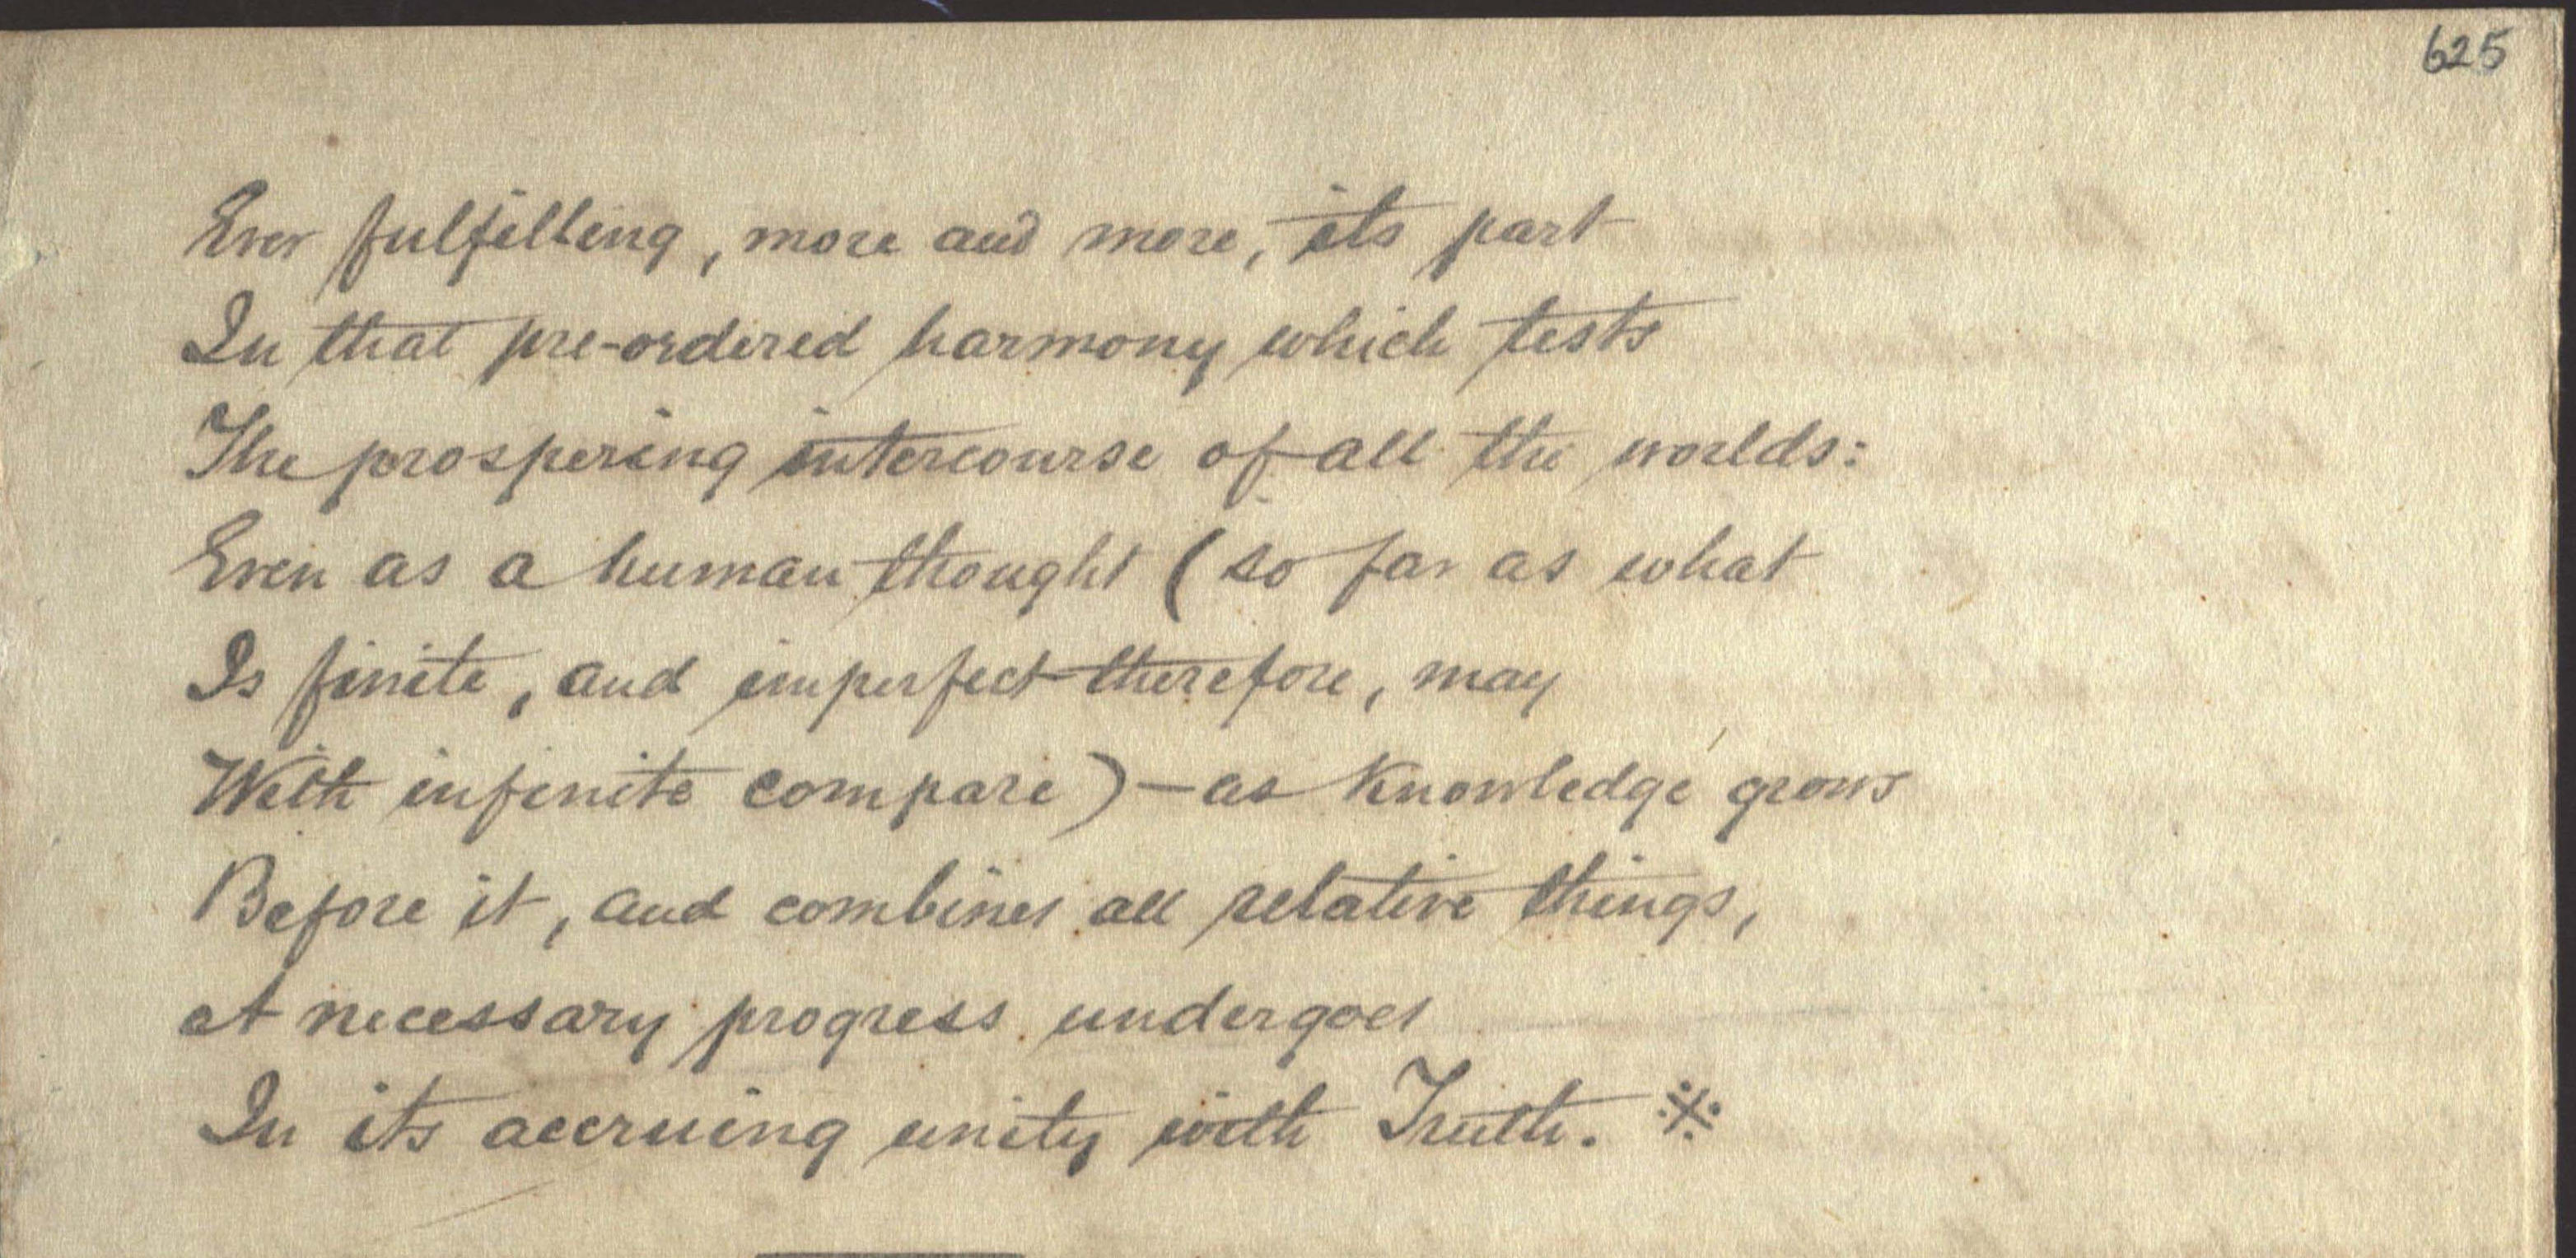 625
Ever fulfilling, more and more, its part
In that pre-ordered harmony which tests
The prospering intercourse of all the worlds:
Even as a human thought (so far as what
Is finite, and imperfect therefore, may
With infinite compare) – as Knowledge grows
Before it, and combines all relative things,
A necessary progress undergoes
In its accruing unity with Truth. ※